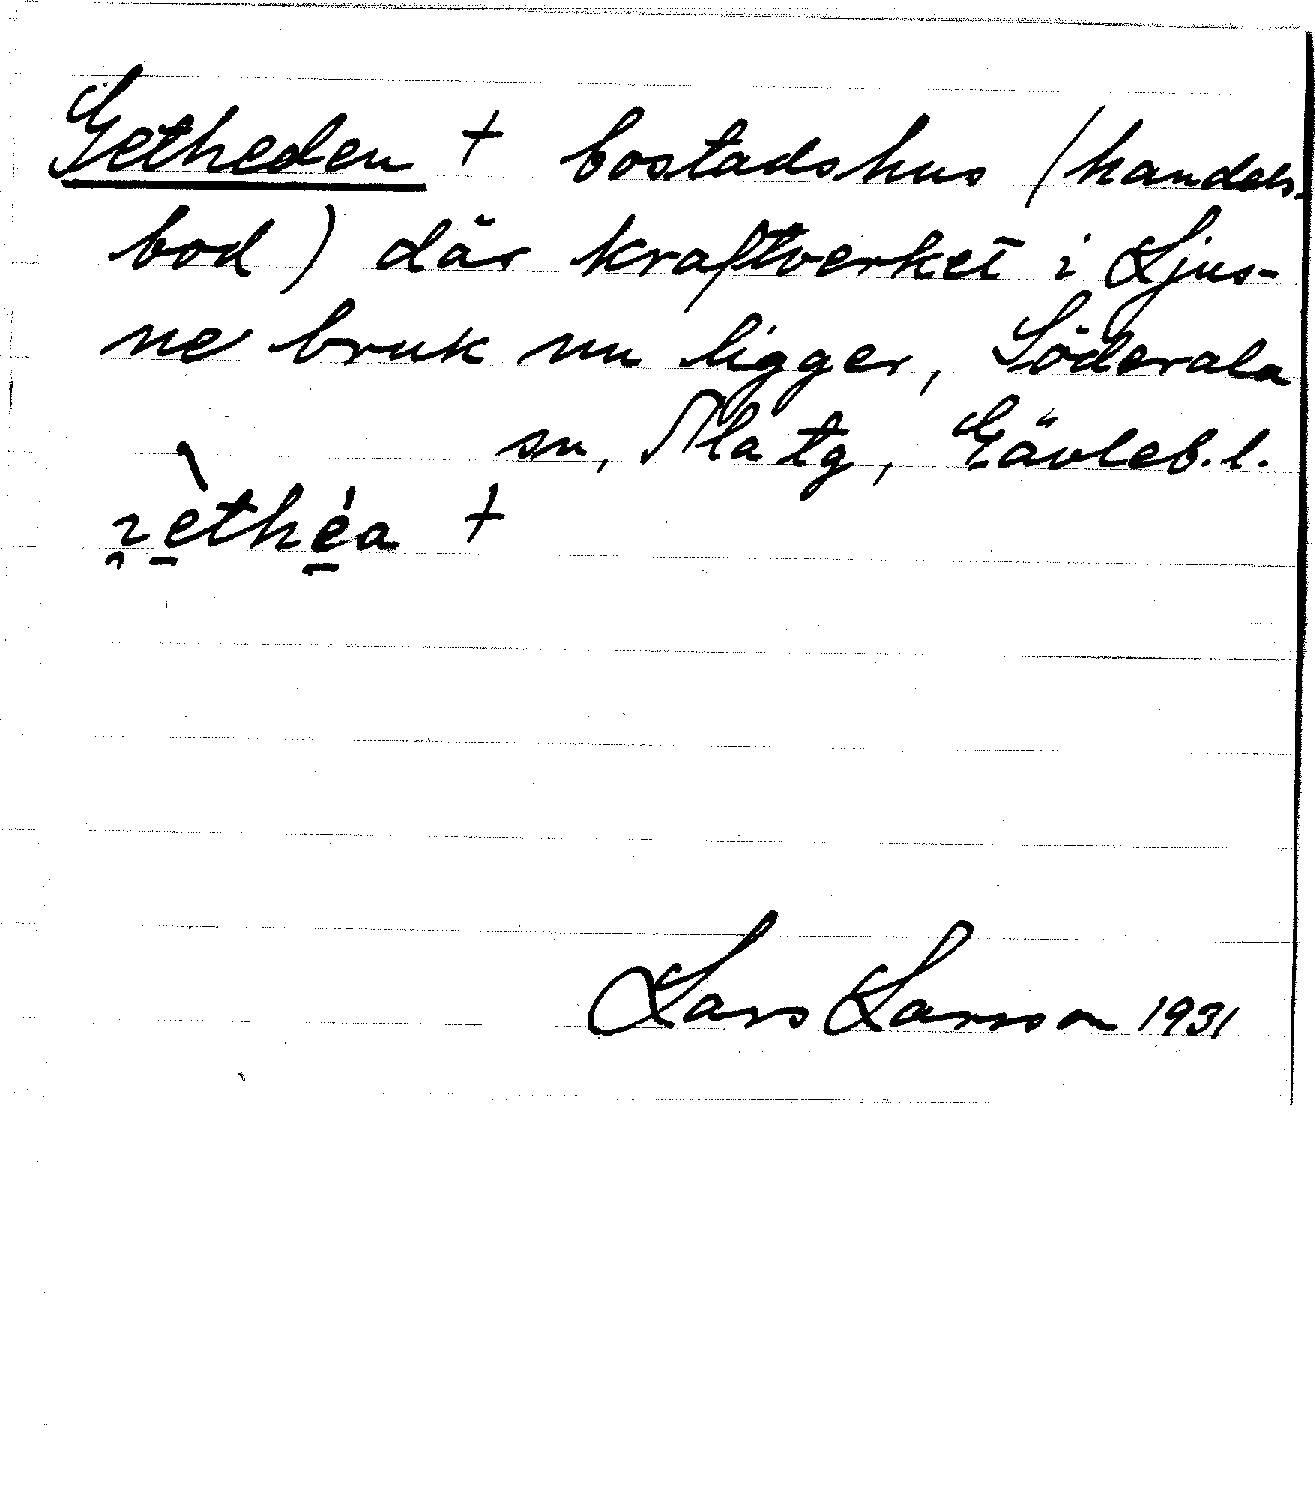 Getheden † bostadshus (handels-
bod) där kraftverket i Ljus-
ne bruk nu ligger, Söderala
sn, Ala tg, Gävleb. l.
i̯e̠̖the̠̍a †
Lars Larsson 1931